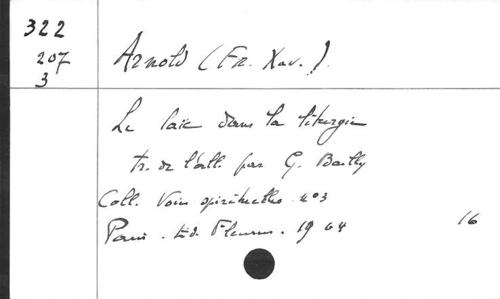 322
207
3
Arnold (Fr. Xav.).
Le laïc dans la liturgie
tr. de l'all. par G. Bailly
Coll. Voies spirituelles. n°3
Paris. Ed. Fleurus. 1964
16